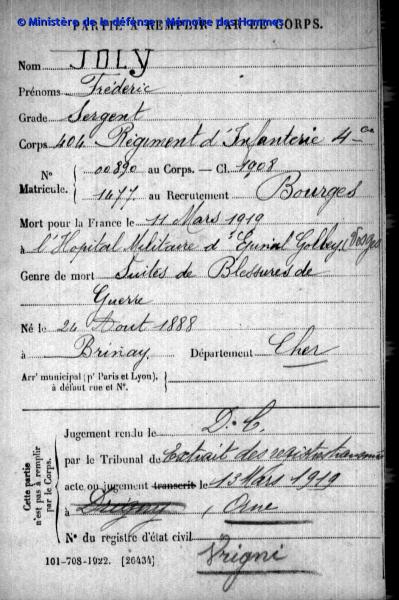 © Ministère de la défense - Mémoire des Hommes
PARTIE À REMPLIR PAR LE CORPS.
Nom JOLY
Prénoms Fréderic
Grade Sergent
Corps 404 Régiment d'Infanterie 4 Cie
N° Matricule. 00890 au Corps. — Cl. 1908
1477 au Recrutement Bourges
Mort pour la France le 11 Mars 1919
à l'Hopital Militaire d' Golbey (Vosges
Genre de mort Suites de Blessures de
Guerre
Né le 24 Aout 1888
à Brinay, Département Cher
Arr' municipal (p' Paris et Lyon),
à défaut rue et N°.
Cette partie n'est pas à remplir par le Corps.
Jugement rendu le D. C.
par le Tribunal de Extrait des registres
acte ou jugement transcrit le 13 Mars 1919
à Orne
N° du registre d'état civil
Vrigni
101-708-1922. [26434]